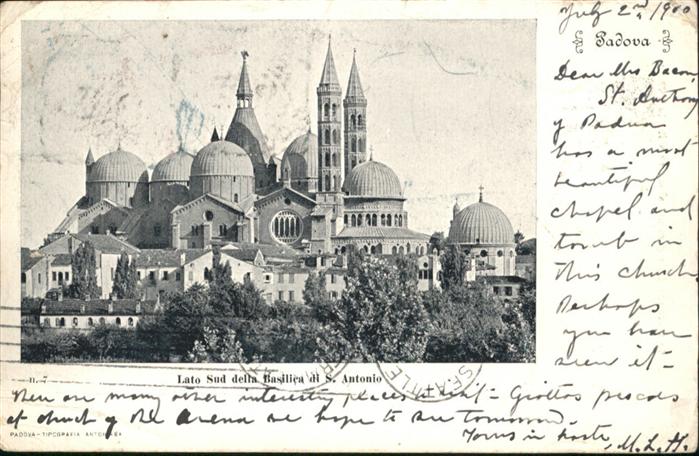 July 2nd 1900
Padova
Dear Mrs Bacon,
St. Anthony
of Padua
has a most
beautiful
chapel and
tomb in
this church
Perhaps
you have
seen it -
n. 7
Lato Sud della Basilica di S. Antonio
SEA
There are many other interesting places to visit - Giottos frescoes
at church of the Arena we hope to see tomorrow.
PADOVA - TIPOGRAFIA ANTONIANA
Yours in haste, M. L. H.